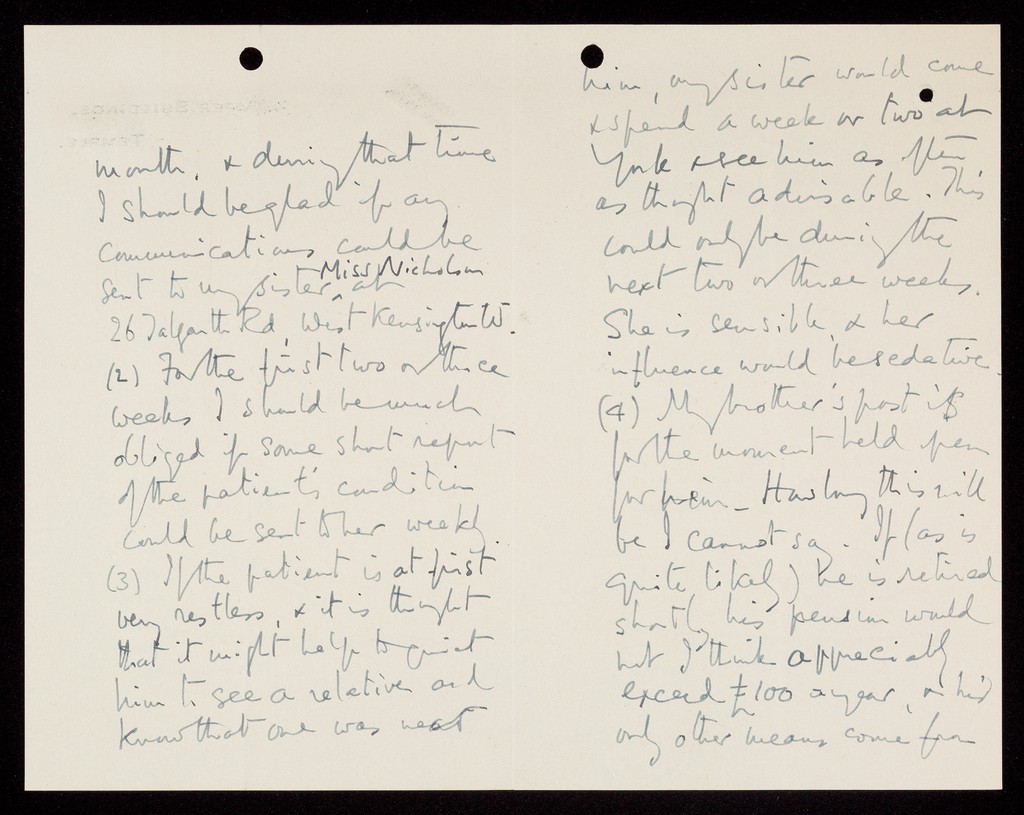 month, & during that time
I should be glad if any
communications could be
sent to my sister, Miss Nicholson at
26 Talgarth Rd, West Kensington W.
(2) For the first two or three
weeks I should be much
obliged if some short report
of the patient's condition
could be sent to her weekly.
(3) If the patient is at first
very restless, & it is thought
that it might help to quiet
him to see a relative and
know that one was near
him, my sister would come
& spend a week or two at
York & see him as often
as thought advisable. This
could only be during the
next two or three weeks.
She is sensible, & her
influence would be sedative.
(4) My brother's post is
for the moment held open
for him - How long this will
be I cannot say. If (as is
quite likely) he is retired
shortly his pension would
not I think appreciably
exceed £100 a year, & his
only other means come from
PAPER BUILDINGS.
TEMPLE.